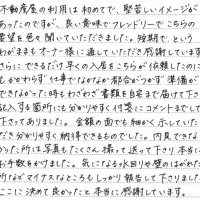 不動産屋の利用は初めてで、堅苦しいイメージが
あったのですが、良い意味でフレンドリーでこちらの
要望を色々聞いていただきました。短期で、という
わがままもオーナー様に通していただき感謝しています。
さらに、できるだけ早くの入居をこちらが依頼したのに
もかかわらず 仕事でなかなか都合がつかず 準備が
できなかった時もわざわざ書類を自宅まで届けて下さり、
記入する箇所にも分かりやすく付箋にコメントまでして
下さってありました。金額の面でも細かく示していた
だき分かりやすく納得できるものでした。内見できな
かった所は写真もたくさん撮って送って下さり本当に
お手数おかけしました。気になる水回りや壁のはがれた
所などマイナスなところもしっかり報告して下さりました。
ここに決めて良かったと本当に感謝しています。